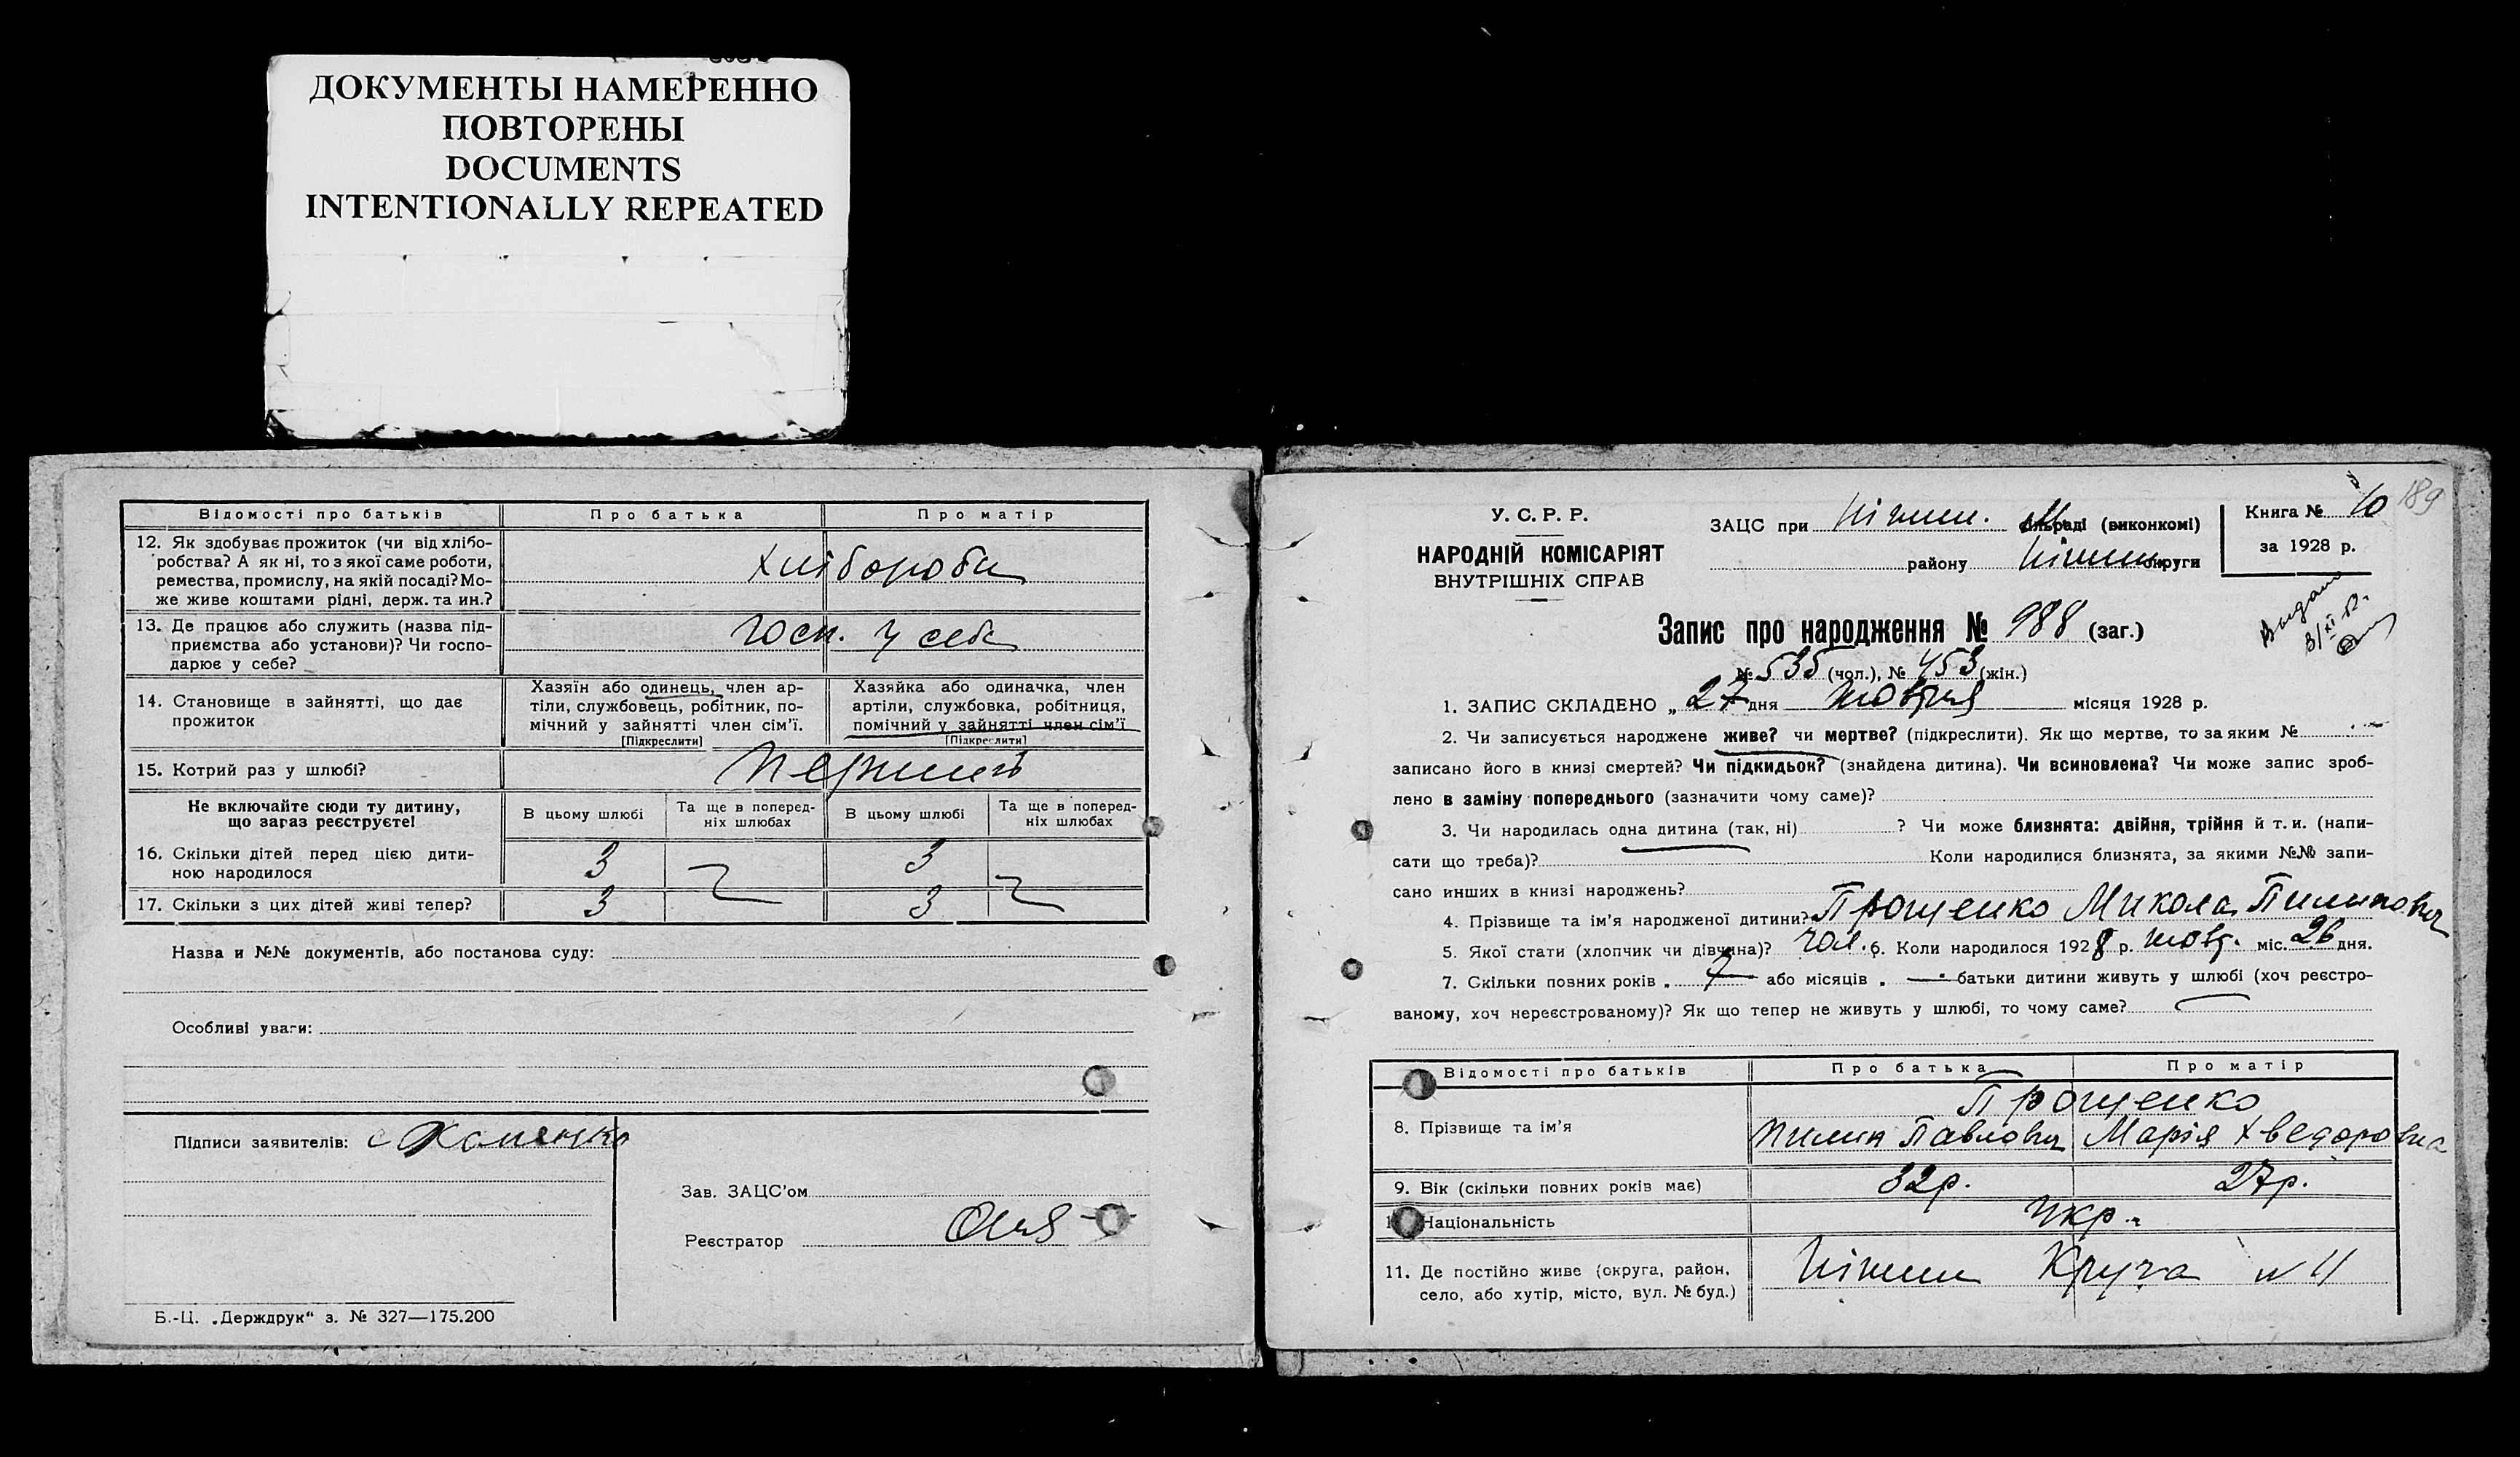 ДОКУМЕНТЫ НАМЕРЕННО
ПОВТОРЕНЫ
DOCUMENTS
INTENTIONALLY REPEATED
Відомості про батьків Про батька Про матір
12. Як здобуває прожиток (чи від хлібо-
робства? А як ні, то з якої саме роботи,
ремества, промислу, на якій посаді? Мо-
же живе коштами рідні, держ. та ин.?
хлібороби
13. Де працює або служить (назва під-
приємства або установи)? Чи госпо-
дарює у себе?
госп. у себе
14. Становище в зайнятті, що дає
прожиток
Хазяїн або одинець, член ар-
тіли, службовець, робітник, по-
мічний у зайнятті член сім'ї.
[Підкреслити]
Хазяйка або одиначка, член
артіли, службовка, робітниця,
помічний у зайнятті член сім'ї
[Підкреслити]
15. Котрий раз у шлюбі? перший
Не включайте сюди ту дитину,
що зараз реєструєте!
В цьому шлюбі
Та ще в поперед-
ніх шлюбах
В цьому шлюбі
Та ще в поперед-
ніх шлюбах
16. Скільки дітей перед цією дити-
ною народилося
3 3
17. Скільки з цих дітей живі тепер? 3 3
Назва и №№ документів, або постанова суду:
Особливі уваги:
Підписи заявителів:
Зав. ЗАЦС'ом
Реєстратор
Б.-Ц. „Держдрук“ з. № 327—175.200
189
У. С. Р. Р.
НАРОДНІЙ КОМІСАРІЯТ
ВНУТРІШНІХ СПРАВ
ЗАЦС при Ніжин. М сільраді (виконкомі)
району Ніжин округи
Книга № 10
за 1928 р.
Запис про народження № 988 (заг.)
№ 535 (чол.), № 453 (жін.)
1. ЗАПИС СКЛАДЕНО „ 27 дня жовтня місяця 1928 р.
2. Чи записується народжене живе? чи мертве? (підкреслити). Як що мертве, то за яким №
записано його в книзі смертей? Чи підкидьок? (знайдена дитина). Чи всиновлена? Чи може запис зроб-
лено в заміну попереднього (зазначити чому саме)?
3. Чи народилась одна дитина (так, ні) ? Чи може близнята: двійня, трійня й т. и. (напи-
сати що треба)? Коли народилися близнята, за якими №№ запи-
сано инших в книзі народжень?
4. Прізвище та ім'я народженої дитини? Прощенко Микола Пилипович
5. Якої стати (хлопчик чи дівчина)? чол. 6. Коли народилося 1928 р. жовт. міс. 26 дня.
7. Скільки повних років 7 або місяців — батьки дитини живуть у шлюбі (хоч реєстро-
ваному, хоч нереєстрованому)? Як що тепер не живуть у шлюбі, то чому саме?
Відомості про батьків Про батька Про матір
Прощенко
8. Прізвище та ім'я Пилип Павлович Марія Хведоровна
9. Вік (скільки повних років має) 32р. 27р.
Національність Укр.
11. Де постійно живе (округа, район,
село, або хутір, місто, вул. № буд.)
Ніжин Круча № 11